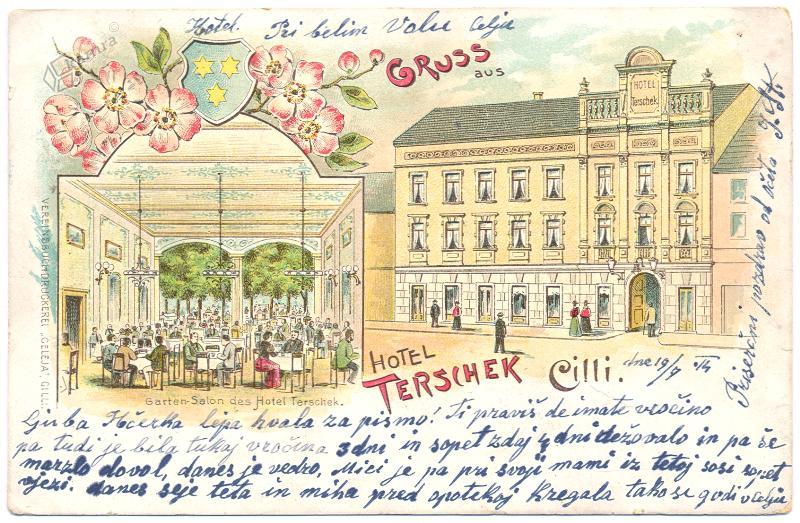 Hotel. Pri belim Volu Celju
GRUSS
aus
HOTEL
Terschek.
VEREINSBUCHDRUCKEREI „CELEJA", CILLI.
Garten-Salon des Hotel Terschek.
HOTEL
TERSCHEK
Cilli. dne 19/7
Priserčni pozdrav od očeta
Ljuba Hčerka lepa hvala za pismo! Ti praviš de imate vročino
pa tudi je bila tukaj vročina 3 dni in sopet zdaj 4 dni deževalo in pa še
marzlo dovol, danes je vedro, Mici je pa pri svoji mami iz tetoj sosi sopet
vjezi. danes se je teta in miha pred opotekoj kregala tako se godi v Celju